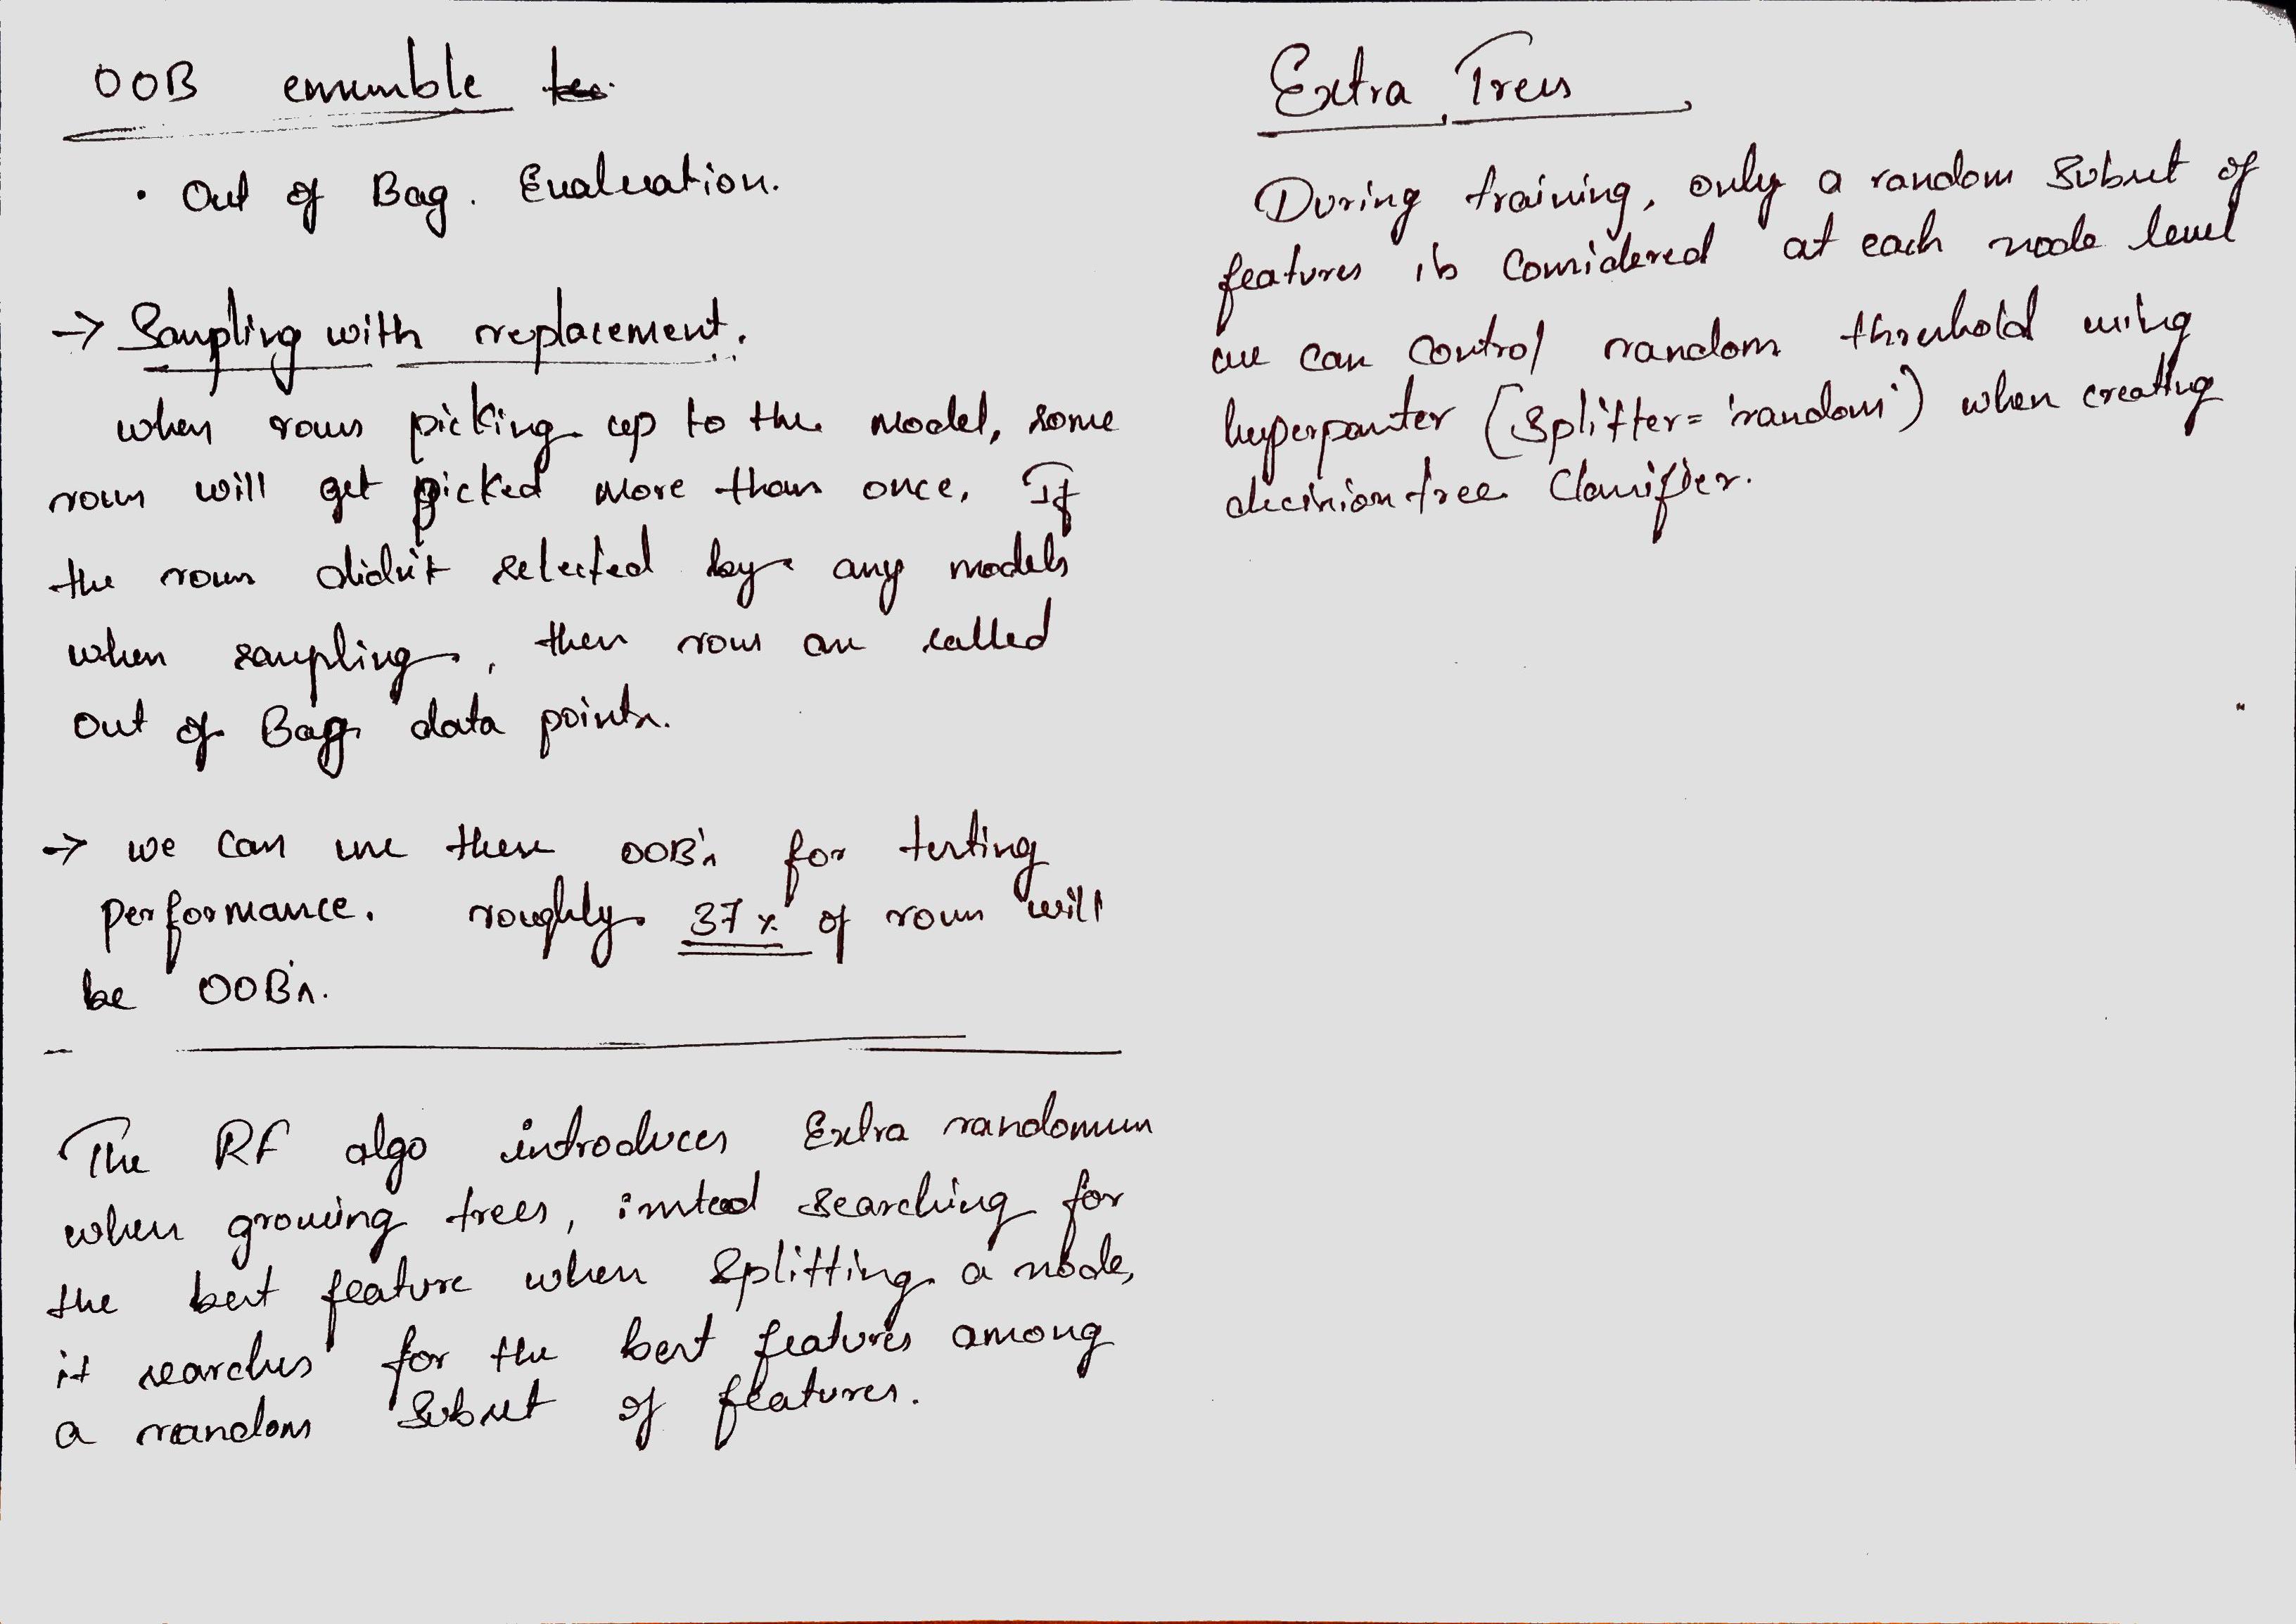 OOB ensemble
• Out of Bag. Evaluation.
→ Sampling with replacement.
when rows picking up to the model, some
rows will get picked more than once. If
the rows didn't selected by any models
when sampling, then rows are called
out of Bag data points.
→ we can use these OOB's for testing
performance. roughly 37% of rows will
be OOB's.
The RF algo introduces Extra randomness
when growing trees, instead searching for
the best feature when splitting a node,
it searches for the best features among
a random subset of features.
Extra Trees
During training, only a random subset of
features is considered at each node level
we can control random threshold using
hyperpamter (splitter = 'random') when creating
decision tree Classifier.